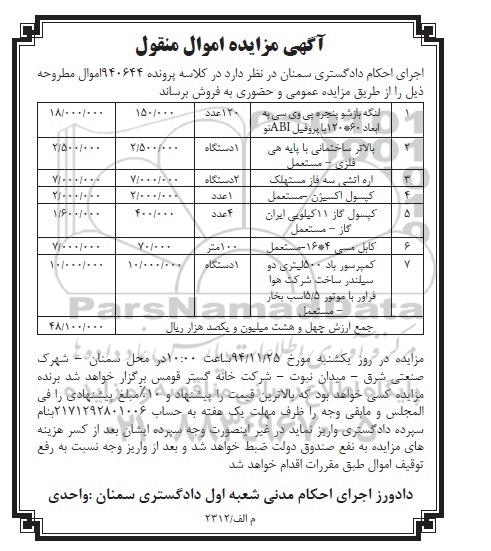 آگهی مزایده اموال منقول
اجرای احکام دادگستری سمنان در نظر دارد در کلاسه پرونده ۹۴۰۶۴۴اموال مطروحه
ذیل را از طریق مزایده عمومی و حضوری به فروش برساند
۱ لنگه بازشو پنجره پی وی سی به ۱۲۰عدد ۱۵۰/۰۰۰ ۱۸/۰۰۰/۰۰۰
ابعاد ۶۰*۱۲۰با پروفیل ABIنو
۲ بالابر ساختمانی با پایه هی ۱دستگاه ۲/۵۰۰/۰۰۰ ۲/۵۰۰/۰۰۰
فلزی – مستعمل
۳ اره آتشی سه فاز مستهلک ۲دستگاه ۷/۰۰۰/۰۰۰
۴ کپسول اکسیژن –مستعمل ۱عدد ۲/۰۰۰/۰۰۰ ۲/۰۰۰/۰۰۰
۵ کپسول گاز ۱۱کیلویی ایران ۴عدد ۴۰۰/۰۰۰ ۱/۶۰۰/۰۰۰
گاز – مستعمل
۶ کابل مسی ۴*۱۶–مستعمل ۱۰۰متر ۷۰/۰۰۰ ۷/۰۰۰/۰۰۰
۷ کمپرسور باد ۵۰۰لیتری دو ۱دستگاه ۱۰/۰۰۰/۰۰۰ ۱۰/۰۰۰/۰۰۰
سیلندر ساخت شرکت هوا
فراور با موتور ۵/۵اسب بخار
– مستعمل
جمع ارزش چهل و هشت میلیون و یکصد هزار ریال ۴۸/۱۰۰/۰۰۰
مزایده در روز یکشنبه مورخ ۹۴/۱۱/۲۵ساعت ۱۰:۰۰در محل سمنان – شهرک
صنعتی شرق – میدان نبوت – شرکت خانه گستر قومس برگزار خواهد شد برنده
مزایده کسی خواهد بود که بالاترین قیمت را پیشنهاد و ۱۰٪مبلغ پیشنهادی را فی
المجلس و مابقی وجه را ظرف مهلت یک هفته به حساب ۲۱۷۱۲۹۲۸۰۱۰۰۶بنام
سپرده دادگستری واریز نماید در غیر اینصورت وجه سپرده ایشان بعد از کسر هزینه
های مزایده به نفع صندوق دولت ضبط خواهد شد و بعد از واریز وجه نسبت به رفع
توقیف اموال طبق مقررات اقدام خواهد شد
دادورز اجرای احکام مدنی شعبه اول دادگستری سمنان :واحدی
م الف/۲۳۱۲
ParsNamadData